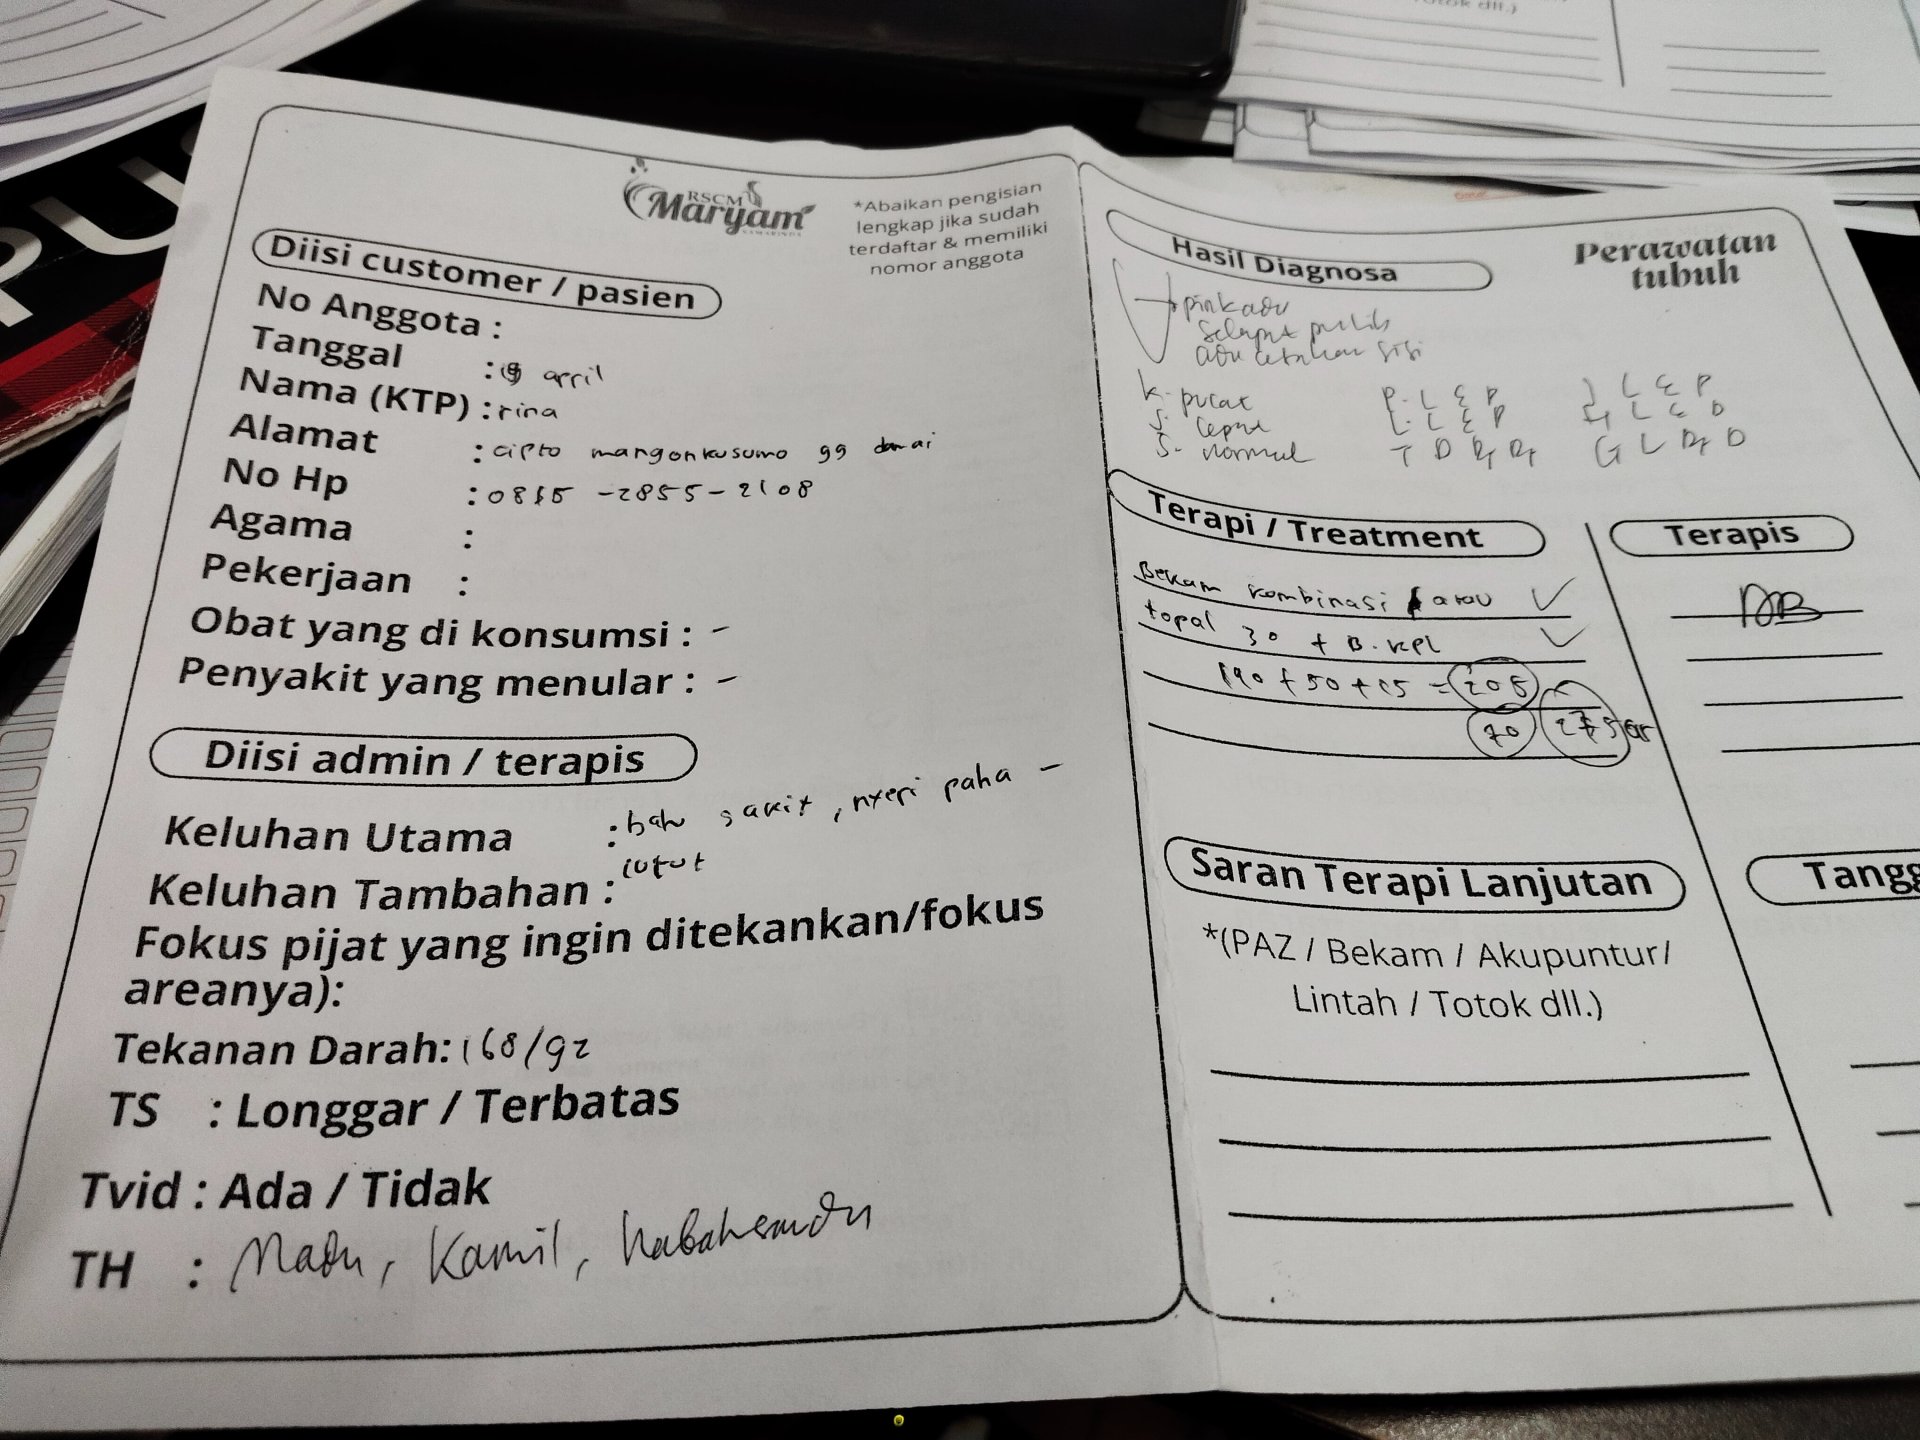 RSCM
Maryam
SAMARINDA
*Abaikan pengisian
lengkap jika sudah
terdaftar & memiliki
nomor anggota
Diisi customer / pasien
No Anggota :
Tanggal : 19 april
Nama (KTP) : rina
Alamat : cipto mangonkusumo gg damai
No Hp : 0815 -2855-2108
Agama :
Pekerjaan :
Obat yang di konsumsi : -
Penyakit yang menular : -
Diisi admin / terapis
Keluhan Utama : bahu sakit, nyeri paha -
lutut
Keluhan Tambahan :
Fokus pijat yang ingin ditekankan/fokus
areanya):
Tekanan Darah: 168/92
TS : Longgar / Terbatas
Tvid : Ada / Tidak
TH : Madu, Kamil, habahsauda
Hasil Diagnosa
Perawatan
tubuh
selaput putih
K. pucat
S. normal
Terapi / Treatment
Terapis
Bekam kombinasi atau
topal 30 + B. kpl
190 + 50 + 25 = 205
70 275
Saran Terapi Lanjutan
Tangg
*(PAZ / Bekam / Akupuntur/
Lintah / Totok dll.)